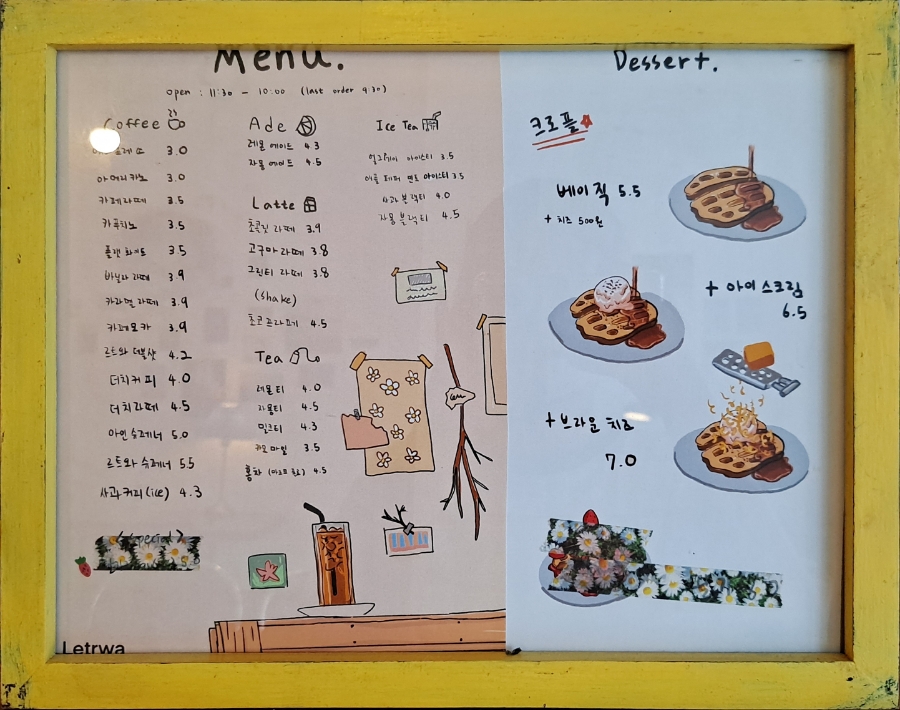 Menu.
open : 11:30 - 10:00 (last order 9:30)
Coffee
3.0
아메리카노 3.0
카페라떼 3.5
카푸치노 3.5
플랫 화이트 3.5
바닐라 라떼 3.9
카라멜 라떼 3.9
카페모카 3.9
르트와 더블샷 4.2
더치커피 4.0
더치라떼 4.5
아인슈페너 5.0
르트와 슈페너 5.5
사과커피(ice) 4.3
<special>
Letrwa
Ade
레몬 에이드 4.3
자몽 에이드 4.5
Latte
초콜릿 라떼 3.9
고구마 라떼 3.8
그린티 라떼 3.8
(shake)
초코 프라페 4.5
Tea
레몬티 4.0
자몽티 4.5
밀크티 4.3
캐모마일 3.5
홍차 4.5
Ice Tea
얼그레이 아이스티 3.5
애플 페퍼 민트 아이스티 3.5
사과 블랙티 4.0
자몽 블랙티 4.5
Dessert.
크로플
베이직 5.5
+ 치즈 500원
+ 아이스크림
6.5
+ 브라운 치즈
7.0